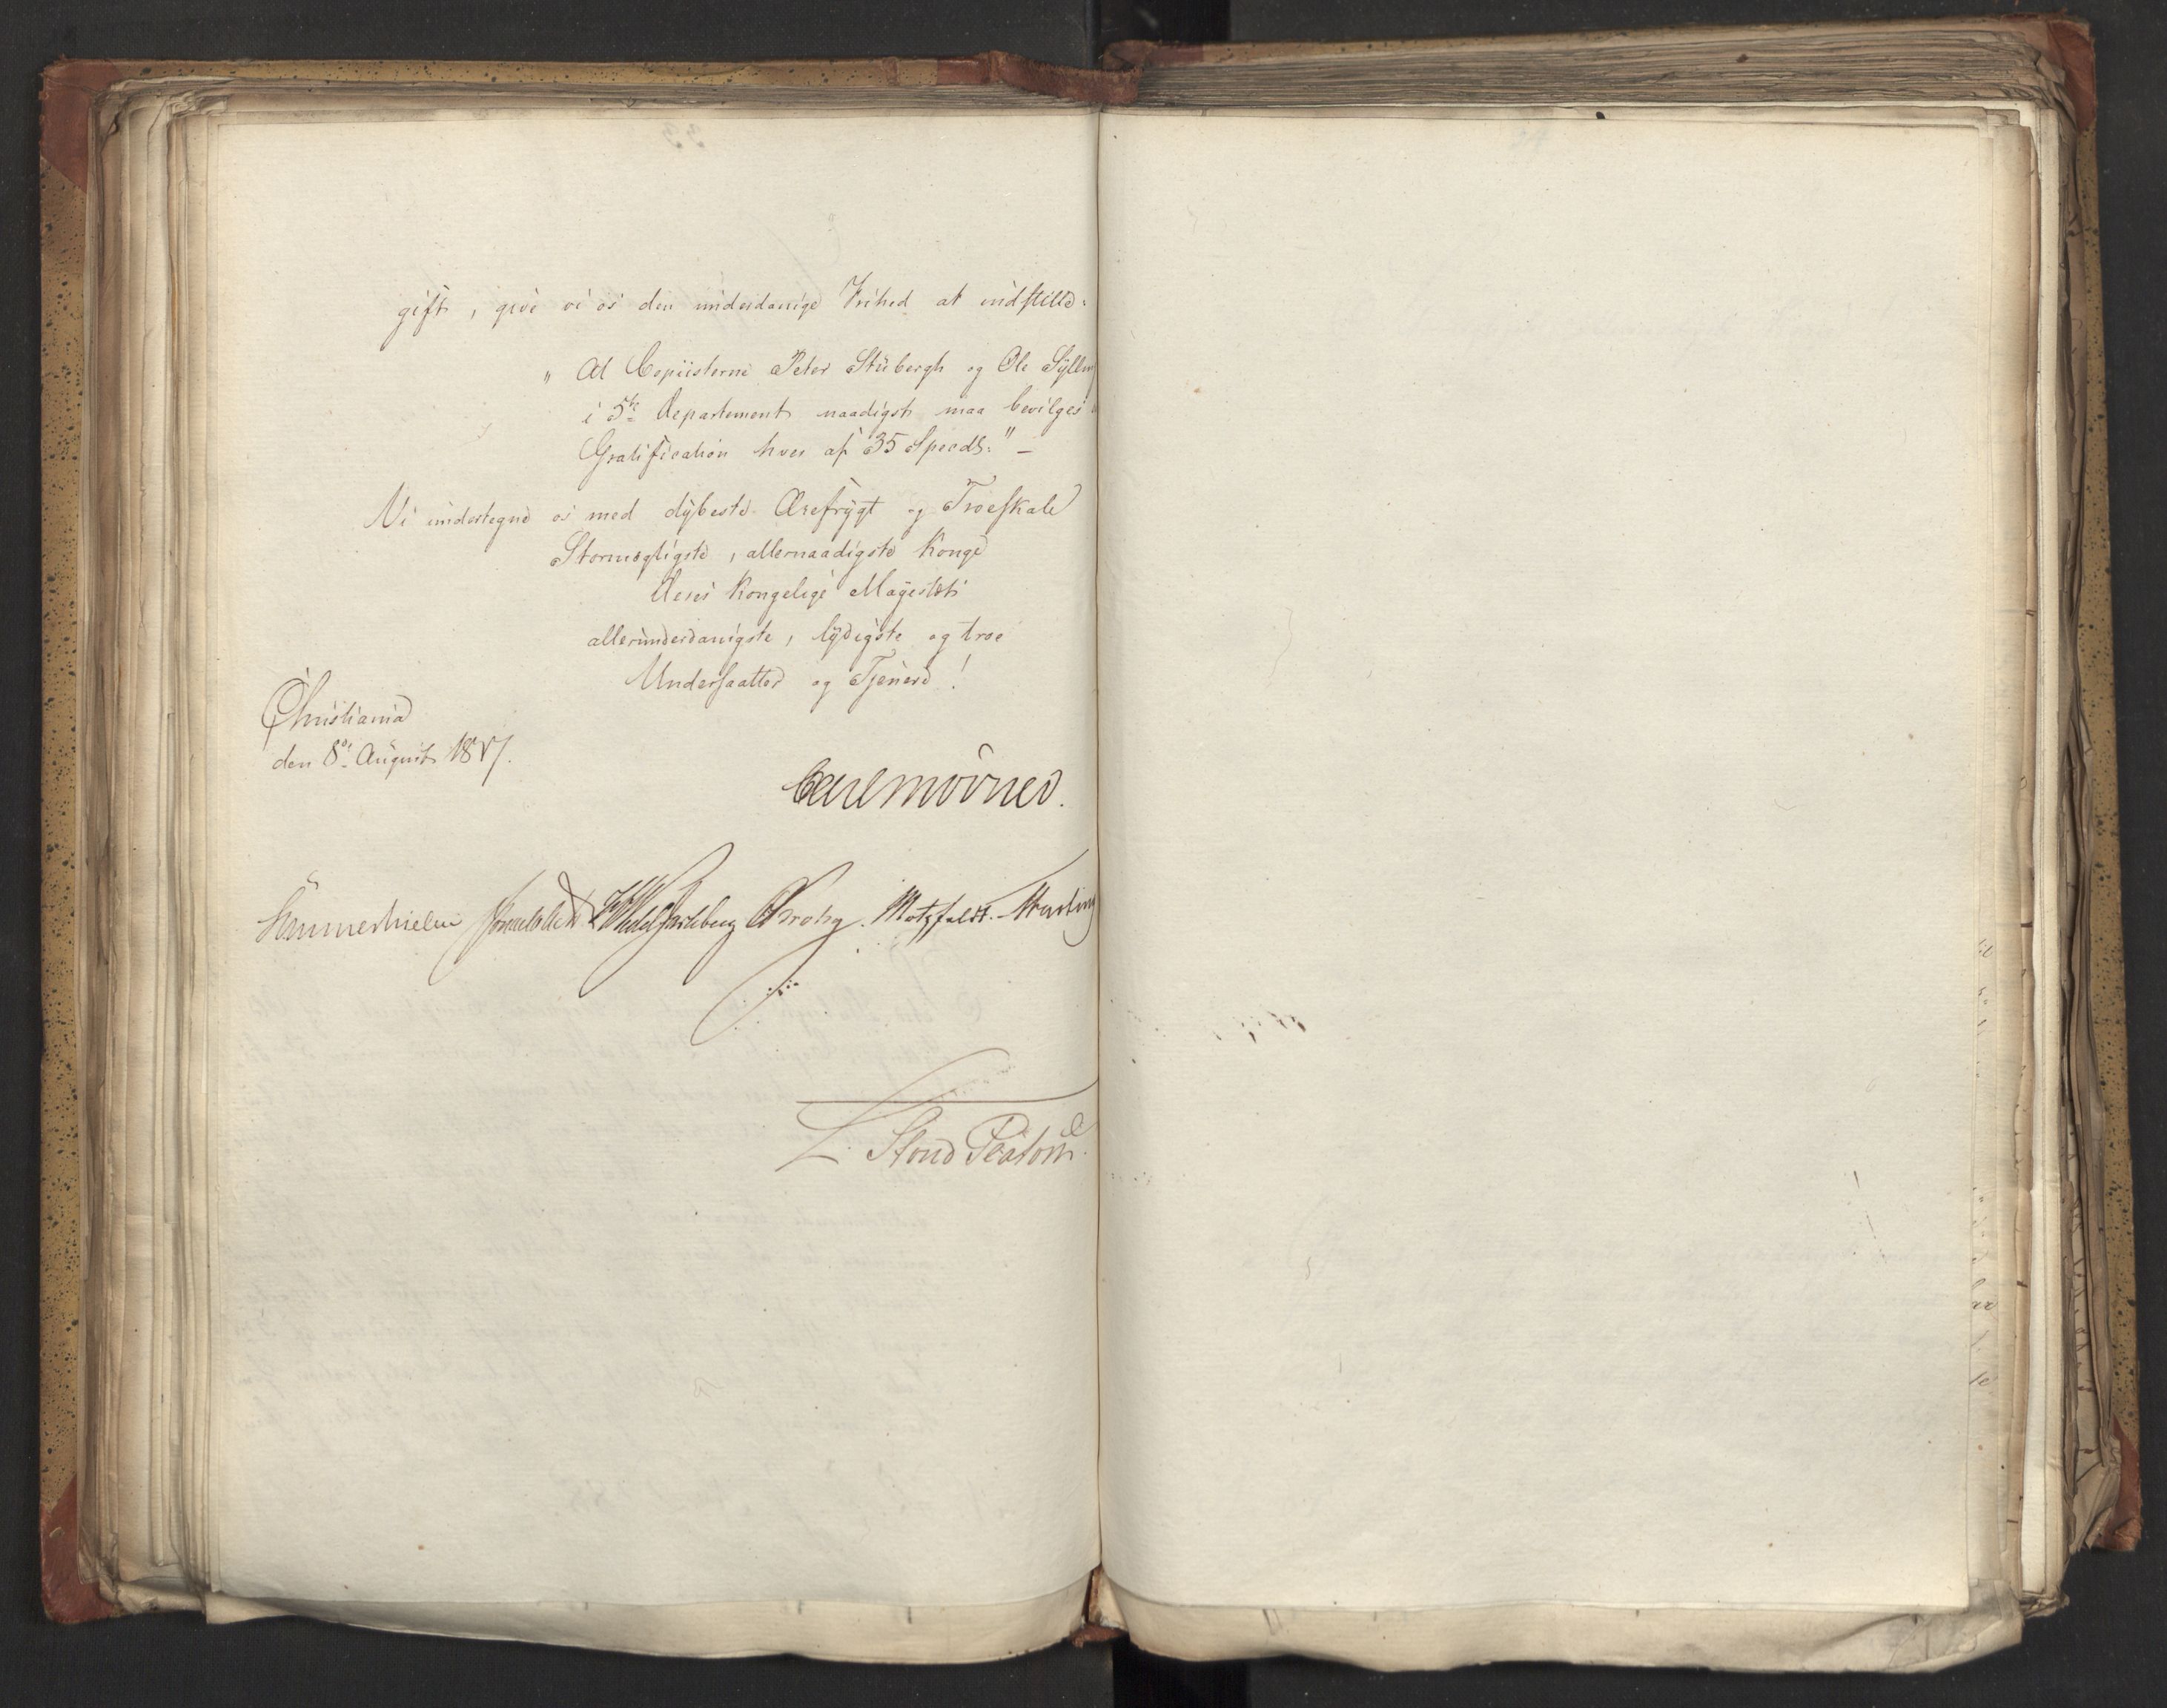 gift, give vi os den underdanige Frihed at indstille:
" At Copiisterne Peter Stübergh og Ole Sylling
i 5te Departement naadigst maa bevilges
Gratification hver af 35 Specdl:" –
Vi undertegne os med dybeste Ærefrygt og Troeskab
Stormægtigste, allernaadigste Konge
Deres Kongelige Mayestæts
allerunderdanigste, lydigste og troe
Undersaatter og Tjenere!
Christiania
den 8de August 1817.
Carl Mörner.
Sommerhielm Wedel Jarlsberg Krohg. Motzfeldt.
L. Stoud Platou